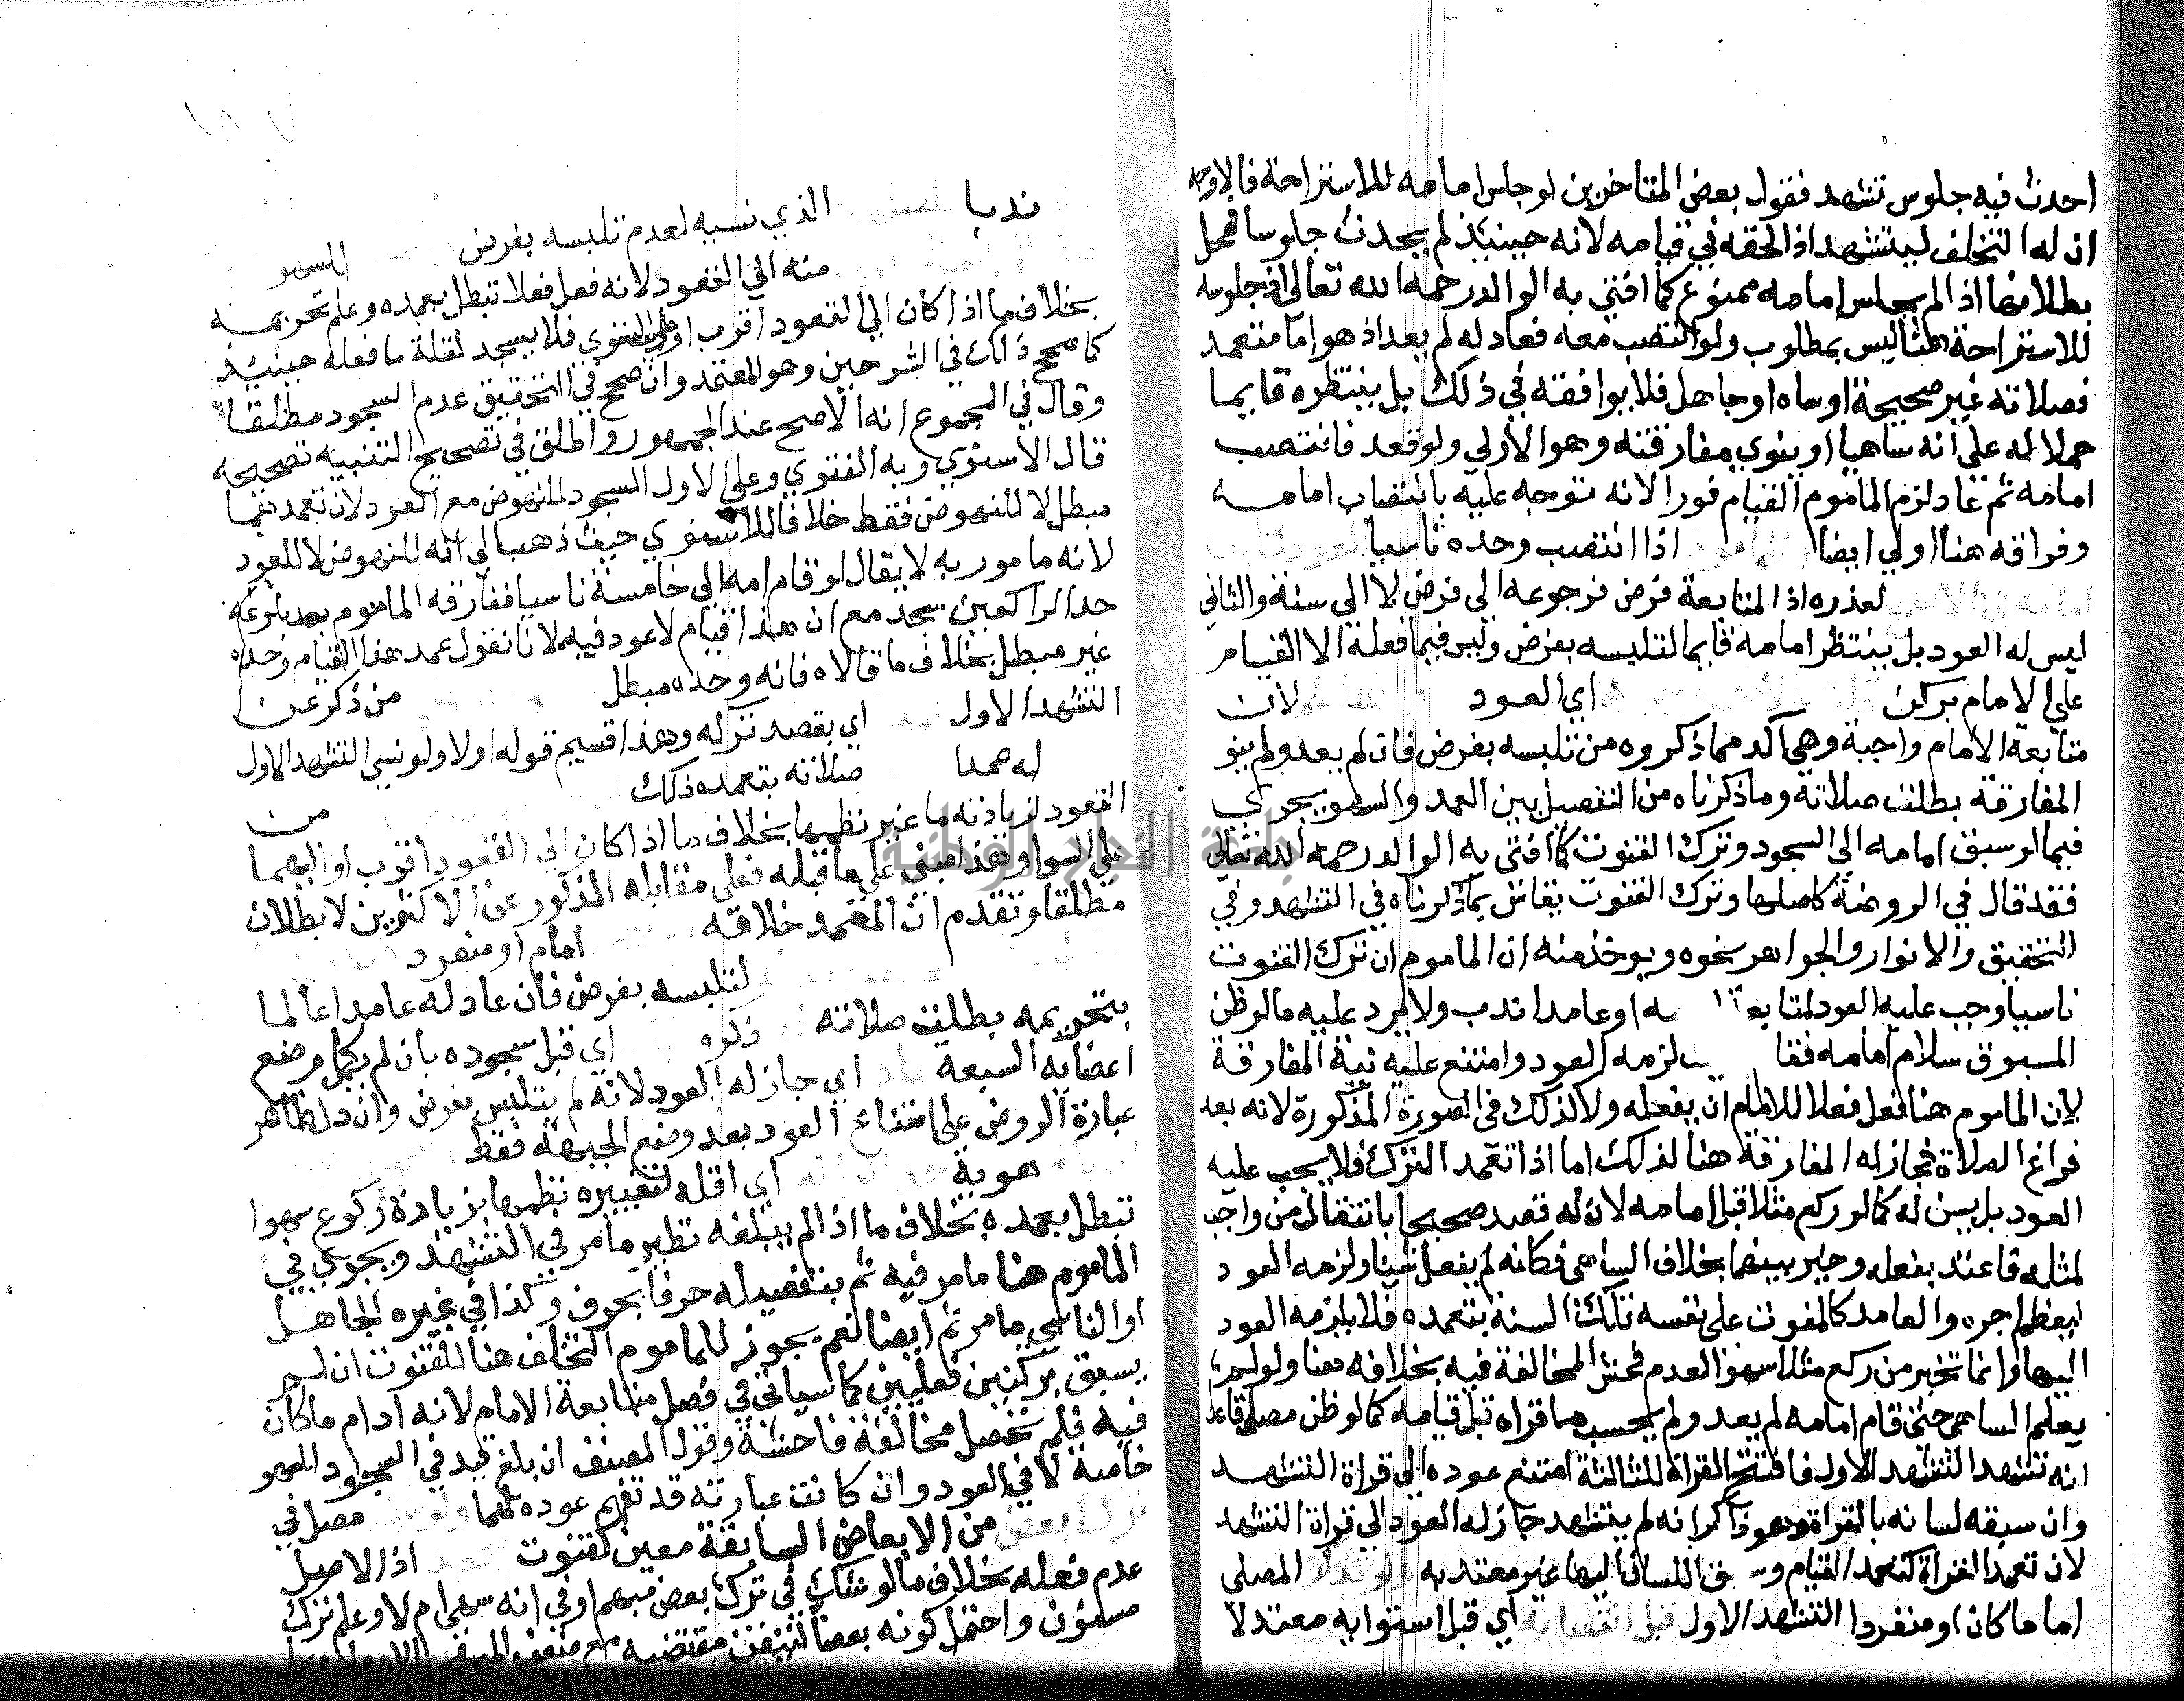 احدث فيه جلوس تشهد فقول بعض المتاخرين لو جلس امامه للاستراحة فالاوجه
ان له التخلف ليتشهد اذا لحقه في قيامه لانه حينئذ لم يحدث جلوسا فمحل
بطلانها اذا لم يجلس امامه ممنوع كما افتى به الوالد رحمه الله تعالى اذ جلوسه
للاستراحة هنا ليس بمطلوب ولو انتصب معه فعاد له لم يعد اذ هو اما متعمد
فصلاته غير صحيحة او ساه او جاهل فلا يوافقه في ذلك بل ينتظره قايما
حملا له على انه ساهيا او ينوي مفارقته وهو الاولى ولو قعد فانتصب
امامه ثم عاد لزم الماموم القيام فورا لانه توجه عليه بانتصاب امامه
وفراقه هنا اولى ايضا اذا انتصب وحده ناسيا
لعذره اذ المتابعة فرض فرجوعه الى فرض لا الى سنة والثاني
ليس له العود بل ينتظر امامه قايما لتلبسه بفرض وليس فيما فعله الا القيام
على الامام بركن اي العود لان
متابعة الامام واجبة وهي آكد مما ذكروه من تلبسه بفرض فان لم يعد ولم ينو
المفارقة بطلت صلاته وما ذكرناه من التفصيل بين العمد والسهو يجري
فيما لو سبق امامه الى السجود وترك القنوت كما افتى به الوالد رحمه الله تعالى
فقد قال في الروضة كاصلها وترك القنوت يقاس بما ذكرناه في التشهد وفي
التحقيق والانوار والجواهر نحوه ويوخذ منه ان الماموم ان ترك القنوت
ناسيا وجب عليه العود لمتابعة ا به او عامدا ندب ولا يرد عليه ما لو ظن
المسبوق سلام امامه فقا لزمه العود وامتنع عليه نية المفارقة
لان الماموم هنا فعل فعلا للامام ان يفعله ولا كذلك في الصورة المذكورة لانه بعد
فراغ الصلاة فجاز له المفارقة هنا لذلك اما اذا تعمد الترك فلا يجب عليه
العود بل يسن له كما لو ركع مثلا قبل امامه لان له قصد صحيحا بانتقاله من واجب
لمثله فاعتد بفعله وخير بينهما بخلاف الساهي فكانه لم يفعل شيا ولزمه العود
ليعظم اجره والعامد كالمفوت على نفسه تلك السنة بتعمده فلا يلزمه العود
اليها وانما تخير من ركع مثلا سهوا لعدم فحش المخالفة فيه بخلافه هنا ولو لم
يعلم الساهي حتى قام امامه لم يعد ولم يحسب ما قراه قبل قيامه كما لو ظن مصل قاعدا
انه تشهد التشهد الاول فافتتح القراة للثالثة امتنع عوده الى قراة التشهد
وان سبقه لسانه بالقراة وهو ذاكر انه لم يتشهد جاز له العود الى قراة التشهد
لان تعمد القراة كتعمد القيام وسبق اللسان اليها غير معتد به ولو تذكر المصلى
اماما كان او منفردا التشهد الاول قبل انتصابه اي قبل استوايه معتدلا
ندبا الذي نسيه لعدم تلبسه بفرض للسهو
منه الى القعود لانه فعل فعلا تبطل بعمده وعلم تحريمه
بخلاف ما اذا كان الى القعود اقرب او على السوي فلا يسجد لقلة ما فعله حينئذ
كما صحح ذلك في الشرحين وهو المعتمد وان صحح في التحقيق عدم السجود مطلقا
وقال في المجموع انه الاصح عند الجمهور واطلق في تصحيح التنبيه تصحيحه
قال الاسنوي وبه الفتوي وعلى الاول السجود للنهوض مع العود لان تعمدهما
مبطل لا للنهوض فقط خلافا للاسنوي حيث ذهب الى انه للنهوض لا للعود
لانه مامور به لا يقال لو قام امامه الى خامسة ناسيا ففارقه الماموم بعد بلوغه
حد الراكعين سجد مع ان هذا قيام لا عود فيه لانا نقول عمد هذا القيام وحده
غير مبطل بخلاف ما قالاه فانه وحده مبطل من ذكر عن
التشهد الاول اي بقصد تركه وهذا قسيم قوله اولا ولو نسي التشهد الاول
له عمدا صلاته بتعمده ذلك من
القعود لزيادته ما غير نظمها بخلاف ما اذا كان الى القعود اقرب او اليهما
على السوا وهذا مبني على ما قبله فعلى مقابله المذكور عن الاكثرين لا بطلان
مطلقا وتقدم ان المعتمد خلافه امام او منفرد
لتلبسه بفرض فان عاد له عامدا عالما
بتحريمه بطلت صلاته ذكره اي قبل سجوده بان لم يكمل وضع
اعضايه السبعة عاد اي جاز له العود لانه لم يتلبس بفرض وان دل ظاهر
عبارة الروض على امتناع العود بعد وضع الجبهة فقط
هويه اي اقله لتغييره نظمها بزيادة ركوع سهوا
تبطل بعمده بخلاف ما اذا لم يبلغه نظير ما مر في التشهد ويجري في
الماموم هنا ما مر فيه ثم بتفصيله حرفا بحرف وكذا في غيره الجاهل
او الناسي ما مر ثم ايضا نعم يجوز للماموم التخلف هنا للقنوت ان لم
يسبق بركنين فعليين كما سياتي في فصل متابعة الامام لانه ادام ما كان
فيه فلم تحصل مخالفة فاحشة وقول المصنف ان بلغ قيد في السجود للسهو
خاصة لا في العود وان كانت عبارته قد تفهم عوده لهما ولو شك مصل في
ترك بعض من الابعاض السابقة معين كقنوت اذ الاصل
عدم فعله بخلاف ما لو شك في ترك بعض مبهم او في انه سهى ام لا وعلم ترك
مسنون واحتمل كونه بعضا